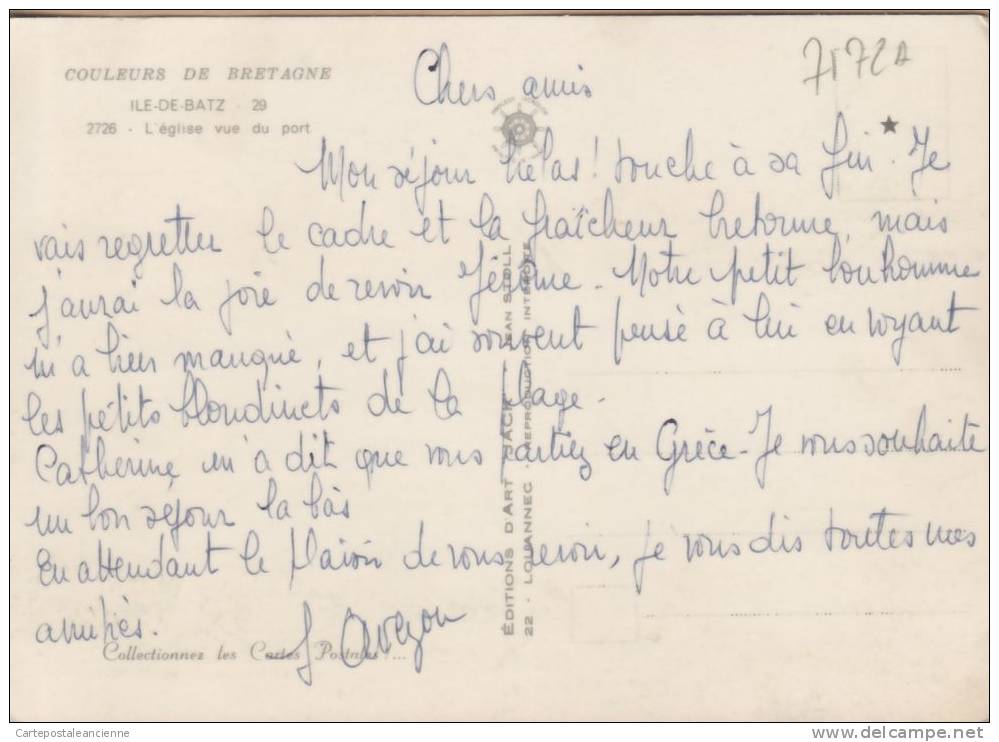 COULEURS DE BRETAGNE
ILE-DE-BATZ - 29
2726 - L'église vue du port
7172A
Chers amis
Mon séjour hélas! touche à sa fin. Je
vais regretter le cadre et la fraîcheur bretonne, mais
j'aurai la joie de revoir Jérôme. Notre petit bonhomme
m'a bien manqué, et j'ai souvent pensé à lui en voyant
les petits blondinets de la plage.
Catherine m'a dit que vous partiez en Grèce - Je vous souhaite
un bon séjour la bàs
En attendant le plaisir de vous revoir, je vous dis toutes mes
amitiés.
J Avezou
Collectionnez les Cartes Postales !...
ÉDITIONS D'ART "JACK" - JEAN STOLL
22 - LOUANNEC - REPRODUCTION INTERDITE
Cartepostaleancienne
www.delcampe.net